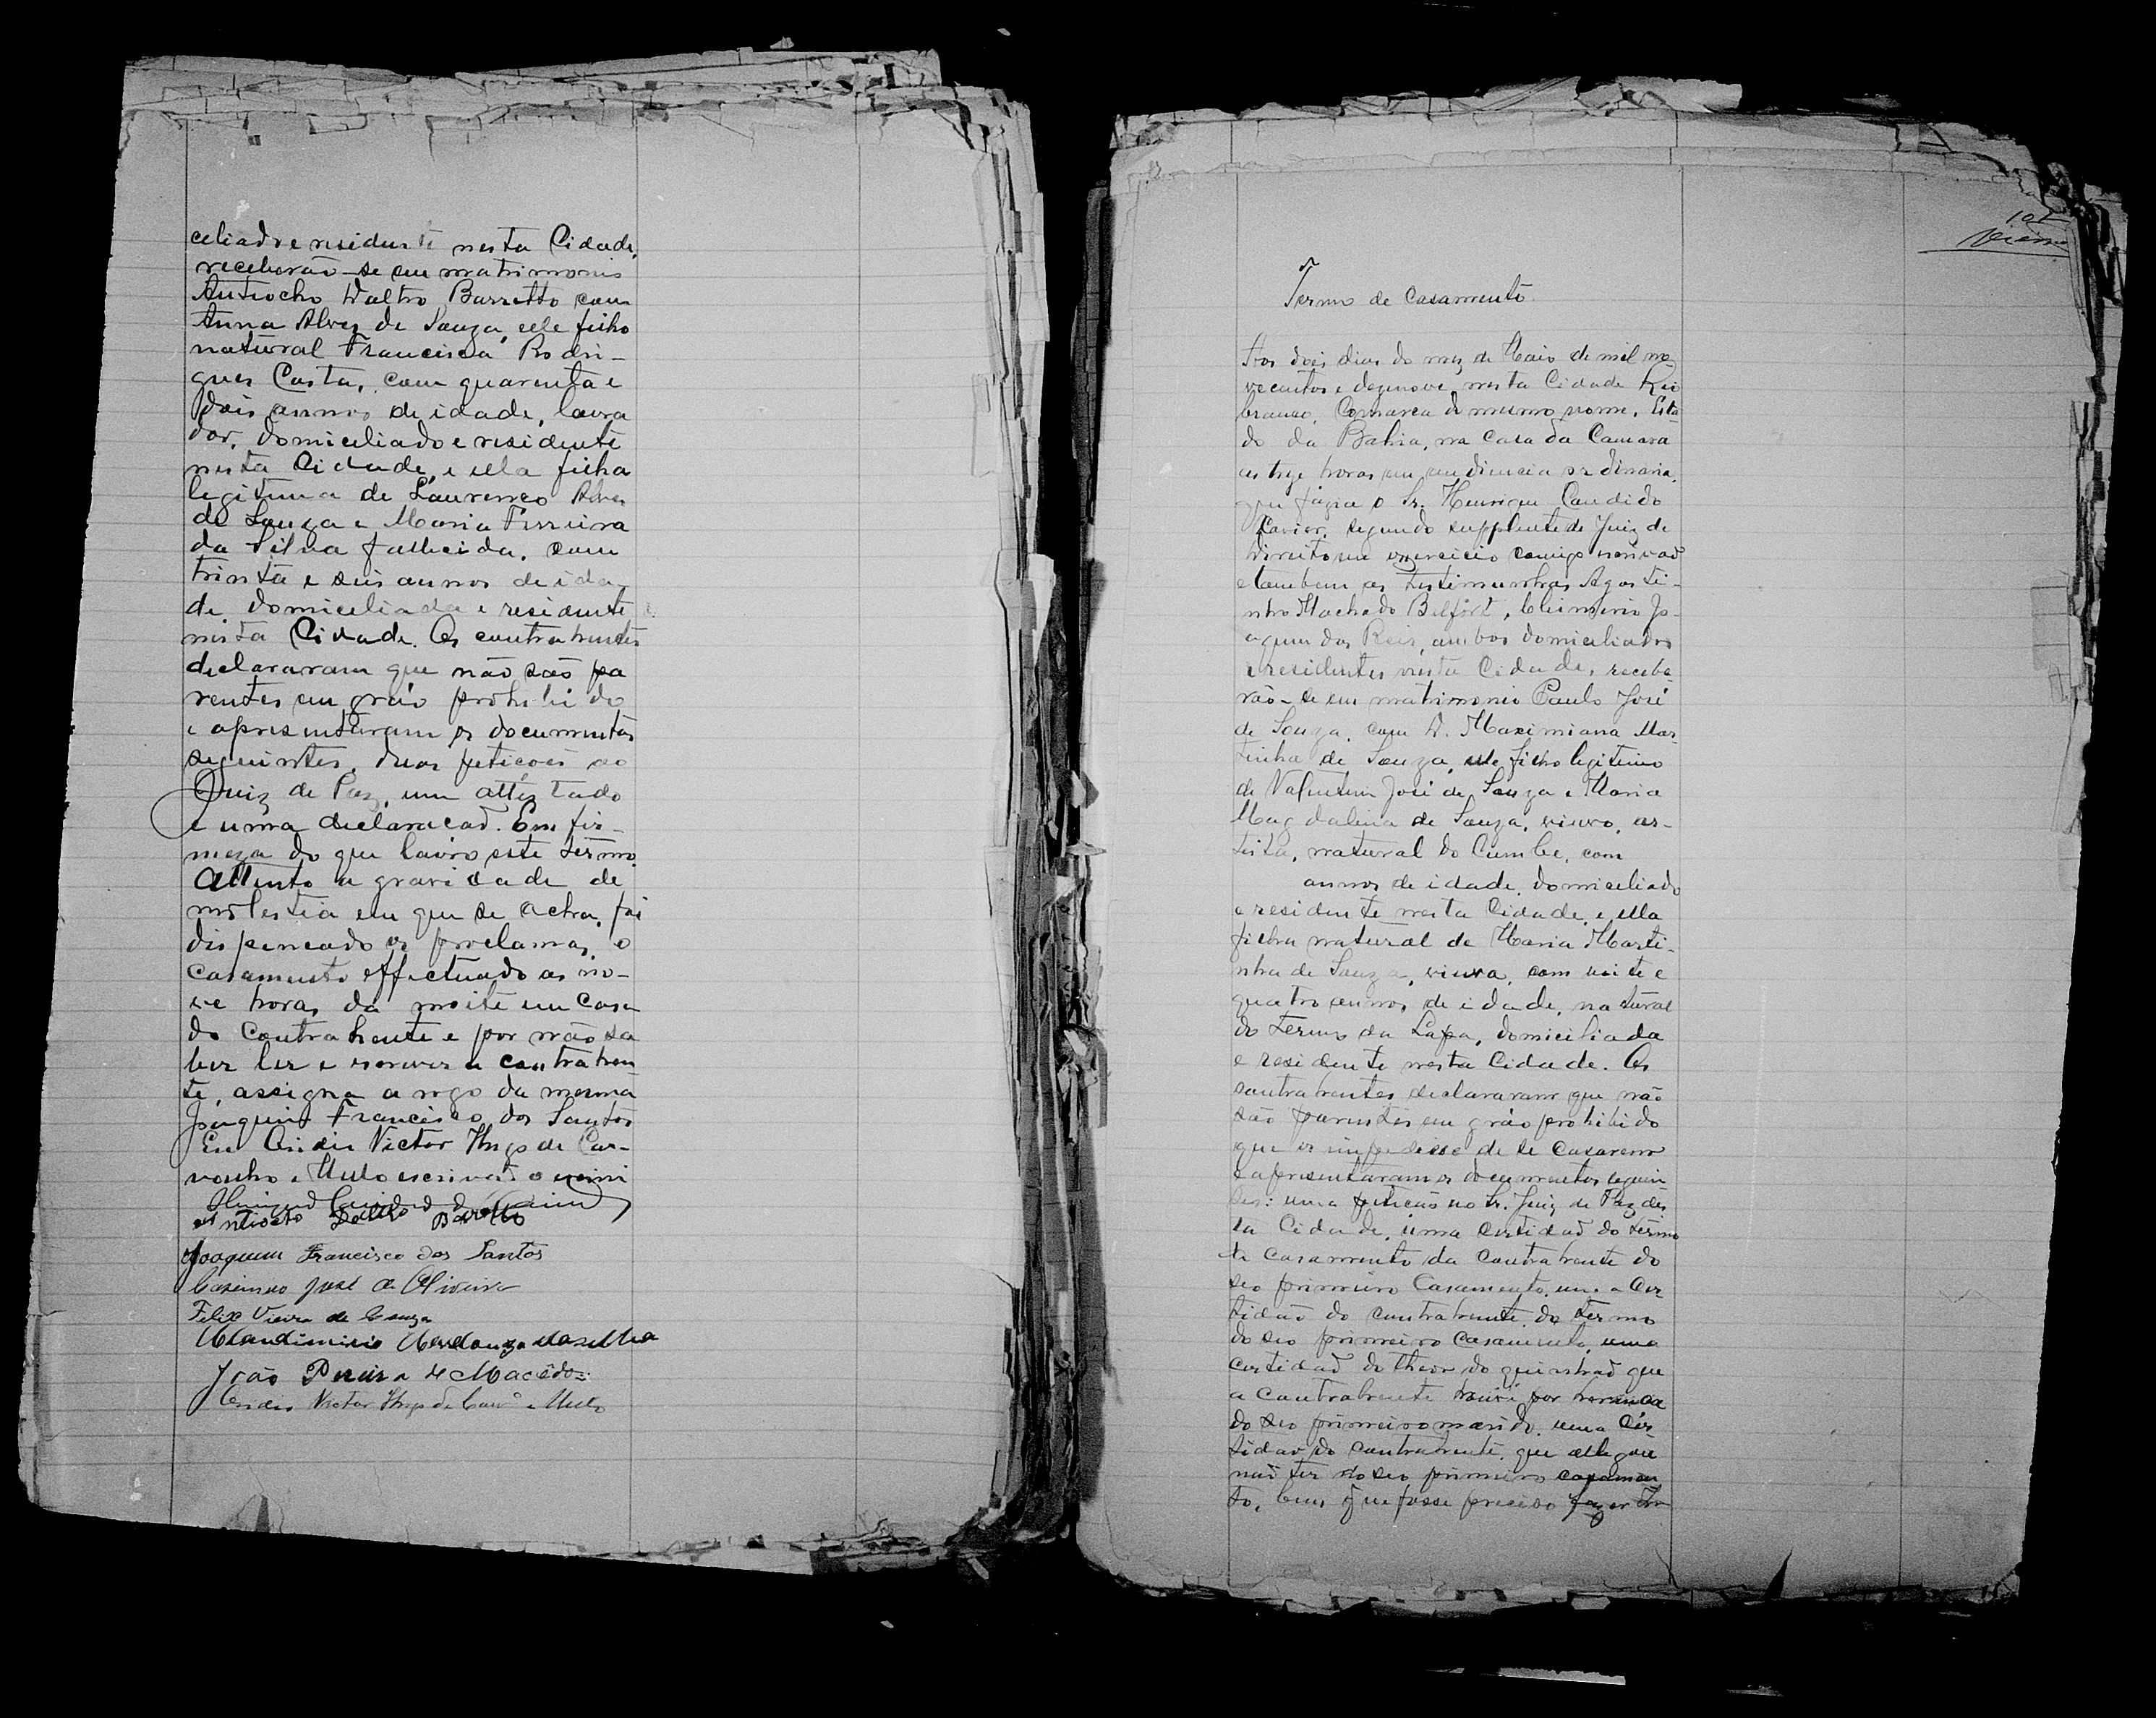 celiado e residente nesta Cidade,
receberão-se em matrimonio
Antiocho Daltro Barretto com
Anna Alves de Souza, elle filho
natural Francisca Rodri-
gues Costa, com quarenta e
dois annos de idade, lavra
dor, domiciliado e residente
nesta Cidade, e ella filha
legitima de Lourenço Alves
de Souza e Maria Ferreira
da Silva fallecida, com
trinta e seis annos de ida-
de domiciliada e residente
nesta Cidade. Os contrahentes
declararam que não são pa
rentes em gráo prohibido
e apresentaram os documentos
seguintes, duas petições ao
Juiz de Paz, um attestado
e uma declaracão. Em fir-
meza do que lavro este termo.
Attento a gravidade de
molestia em que se acha, foi
dispençado os proclamas, o
casamento effectuado as no-
ve horas da noite em casa
do Contrahente e por não sa
ber ler e escrever a contrahen
te, assigna a rogo da mesma
Joaquim Francisco dos Santos
Eu Victor Hugo de Car-
valho e Mello escrivão o escrevi
Antiocho Daltro Barretto
Joaquim Francisco dos Santos
Casimiro José de Oliveira
Felix Vieira de Souza
João Pereira de Macêdo
Victor Hugo de Carvo e Mello
101
Termo de Casamento
Aos dois dias do mez de Maio de mil no-
vecentos e dezenove, nesta Cidade Rio
branco, Comarca do mesmo nome, Esta
do da Bahia, na Casa da Camara
as treze horas em audiencia ordinaria,
que fazia o Sr. Henrique Candido
Xavier, segundo supplente de Juiz de
Direito em exercicio comigo escrivão
e tambem as testimunhas Agosti-
nho Machado Belfort, Climerio Jo-
aquim dos Reis, ambos domiciliados
e residentes nesta Cidade, recebe-
rão-se em matrimonio Paulo José
de Souza, com D. Maximiana Mar-
tinha de Souza, elle filho legitimo
de Valentim José de Souza e Maria
Magdalena de Souza, viuvo, ar-
tista, natural do Cumbe, com
annos de idade, domiciliado
e residente nesta Cidade, e ella
filha natural de Maria Marti-
nha de Souza, viuva, com vinte e
quatro annos de idade, natural
do termo da Lapa, domiciliada
e residente nesta Cidade. Os
contrahentes declararam que não
são parentes em gráo prohibido
que os impedisse de se casarem
e apresentaram os documentos seguin-
tes: uma petição ao Sr. Juiz de Paz des
ta Cidade, uma certidão do termo
de casamento da contrahente do
seo primeiro Casamento, uma Cer
tidão do contrahente do termo
do seo primeiro casamento, uma
certidão do theor do quinhão que
a Contrahente houve por herança
do seo primeiro marido, uma Cer-
tidão do contrahente que allegou
não ter do seo primeiro casamen
to, bens que fosse preciso fazer In